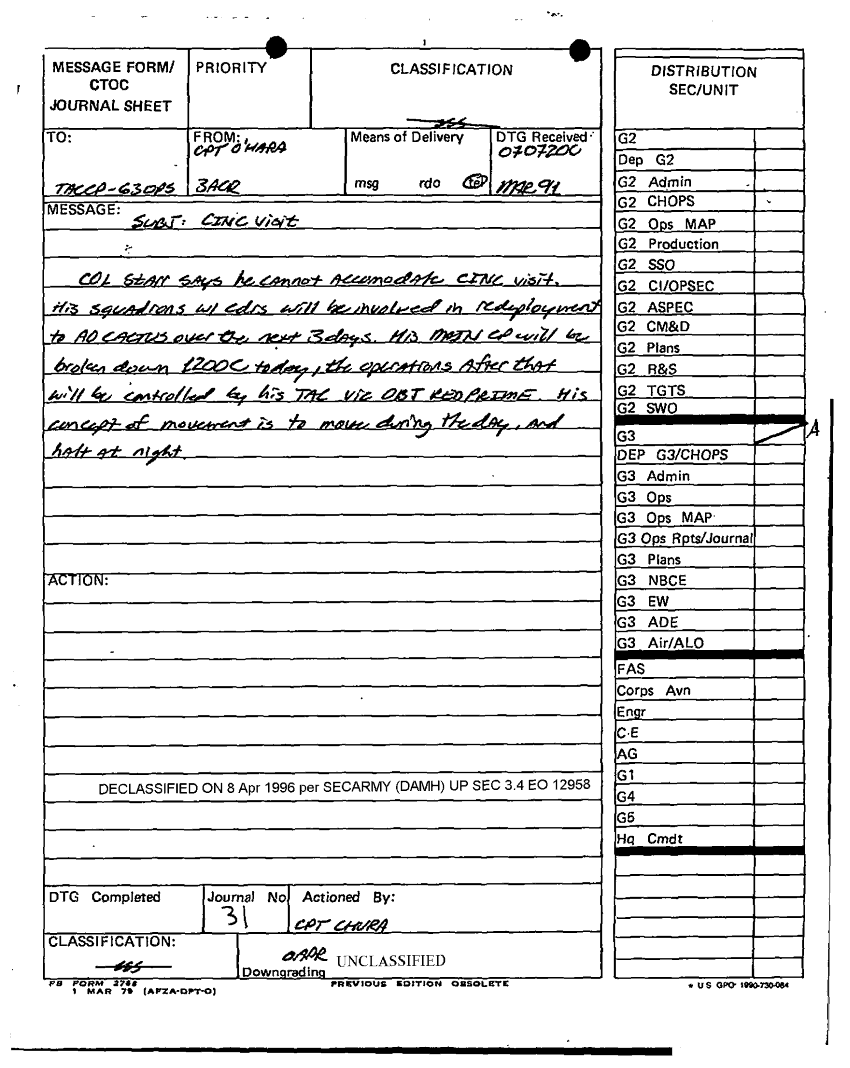 MESSAGE FORM/
CTOC
JOURNAL SHEET
PRIORITY
CLASSIFICATION
TO:
TACCP-G3OPS
FROM:
CPT O'HARA
3ACR
Means of Delivery
msg rdo tel
DTG Received
070720C
MAR 91
MESSAGE:
SUBJ: CINC Visit
COL STARR says he cannot Accomodate CINC visit.
His squadrons w/ cdrs will be involved in redeployment
to AO CACTUS over the next 3 days. His MAIN CP will be
broken down 1200C today, the operations After that
will be controlled by his TAC vic OBJ RED PRIME. His
concept of movement is to move during the day, and
halt at night.
ACTION:
DECLASSIFIED ON 8 Apr 1996 per SECARMY (DAMH) UP SEC 3.4 EO 12958
DTG Completed
Journal No
31
Actioned By:
CPT CHURA
CLASSIFICATION:
OADR UNCLASSIFIED
Downgrading
FB FORM
1 MAR 79 (AFZA-DPT-O)
PREVIOUS EDITION OBSOLETE
DISTRIBUTION
SEC/UNIT
G2
Dep G2
G2 Admin
G2 CHOPS
G2 Ops MAP
G2 Production
G2 SSO
G2 CI/OPSEC
G2 ASPEC
G2 CM&D
G2 Plans
G2 R&S
G2 TGTS
G2 SWO
G3
DEP G3/CHOPS
G3 Admin
G3 Ops
G3 Ops MAP
G3 Ops Rpts/Journal
G3 Plans
G3 NBCE
G3 EW
G3 ADE
G3 Air/ALO
FAS
Corps Avn
Engr
C-E
AG
G1
G4
G5
Hq Cmdt
* U S GPO 1990-730-084